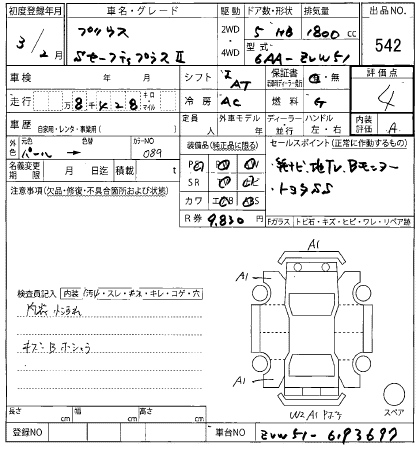 初度登録年月
車名・グレード
駆動
ドア数・形状
排気量
出品NO.
3年/2月
プリウス
Sセーフティプラス II
2WD
4WD
5 HB
1800 cc
型式
6AA-ZVW51
542
車検
年 月
シフト
AT
保証書
有・無
評価点
4
走行
万8千428
キロ
マイル
冷房
AC
燃料
G
車歴
自家用・レンタ・事業用( )
定員
人
外車モデル
年
ディーラー
並行
ハンドル
左・右
内装
評価
A
外色
元色
パール
色替
カラーNO
089
装備品(純正品に限る)
セールスポイント(正常に作動するもの)
名義変更
期限
月 日迄
積載
t
SR
カワ
・純ナビ、地TV、Bモニター
・トヨタSS
注意事項(欠品・修復・不具合箇所および状態)
R券
9,830円
Fガラス
トビ石・キズ・ヒビ・ワレ・リペア跡
検査員記入
内装
汚れ・スレ・キズ・キレ・コゲ・穴
キズ・B ホシュウ
A1
A1
A1
A1
W2, A1
スペア
長さ
cm
幅
cm
高さ
cm
登録NO
車台NO
ZVW51-6193697